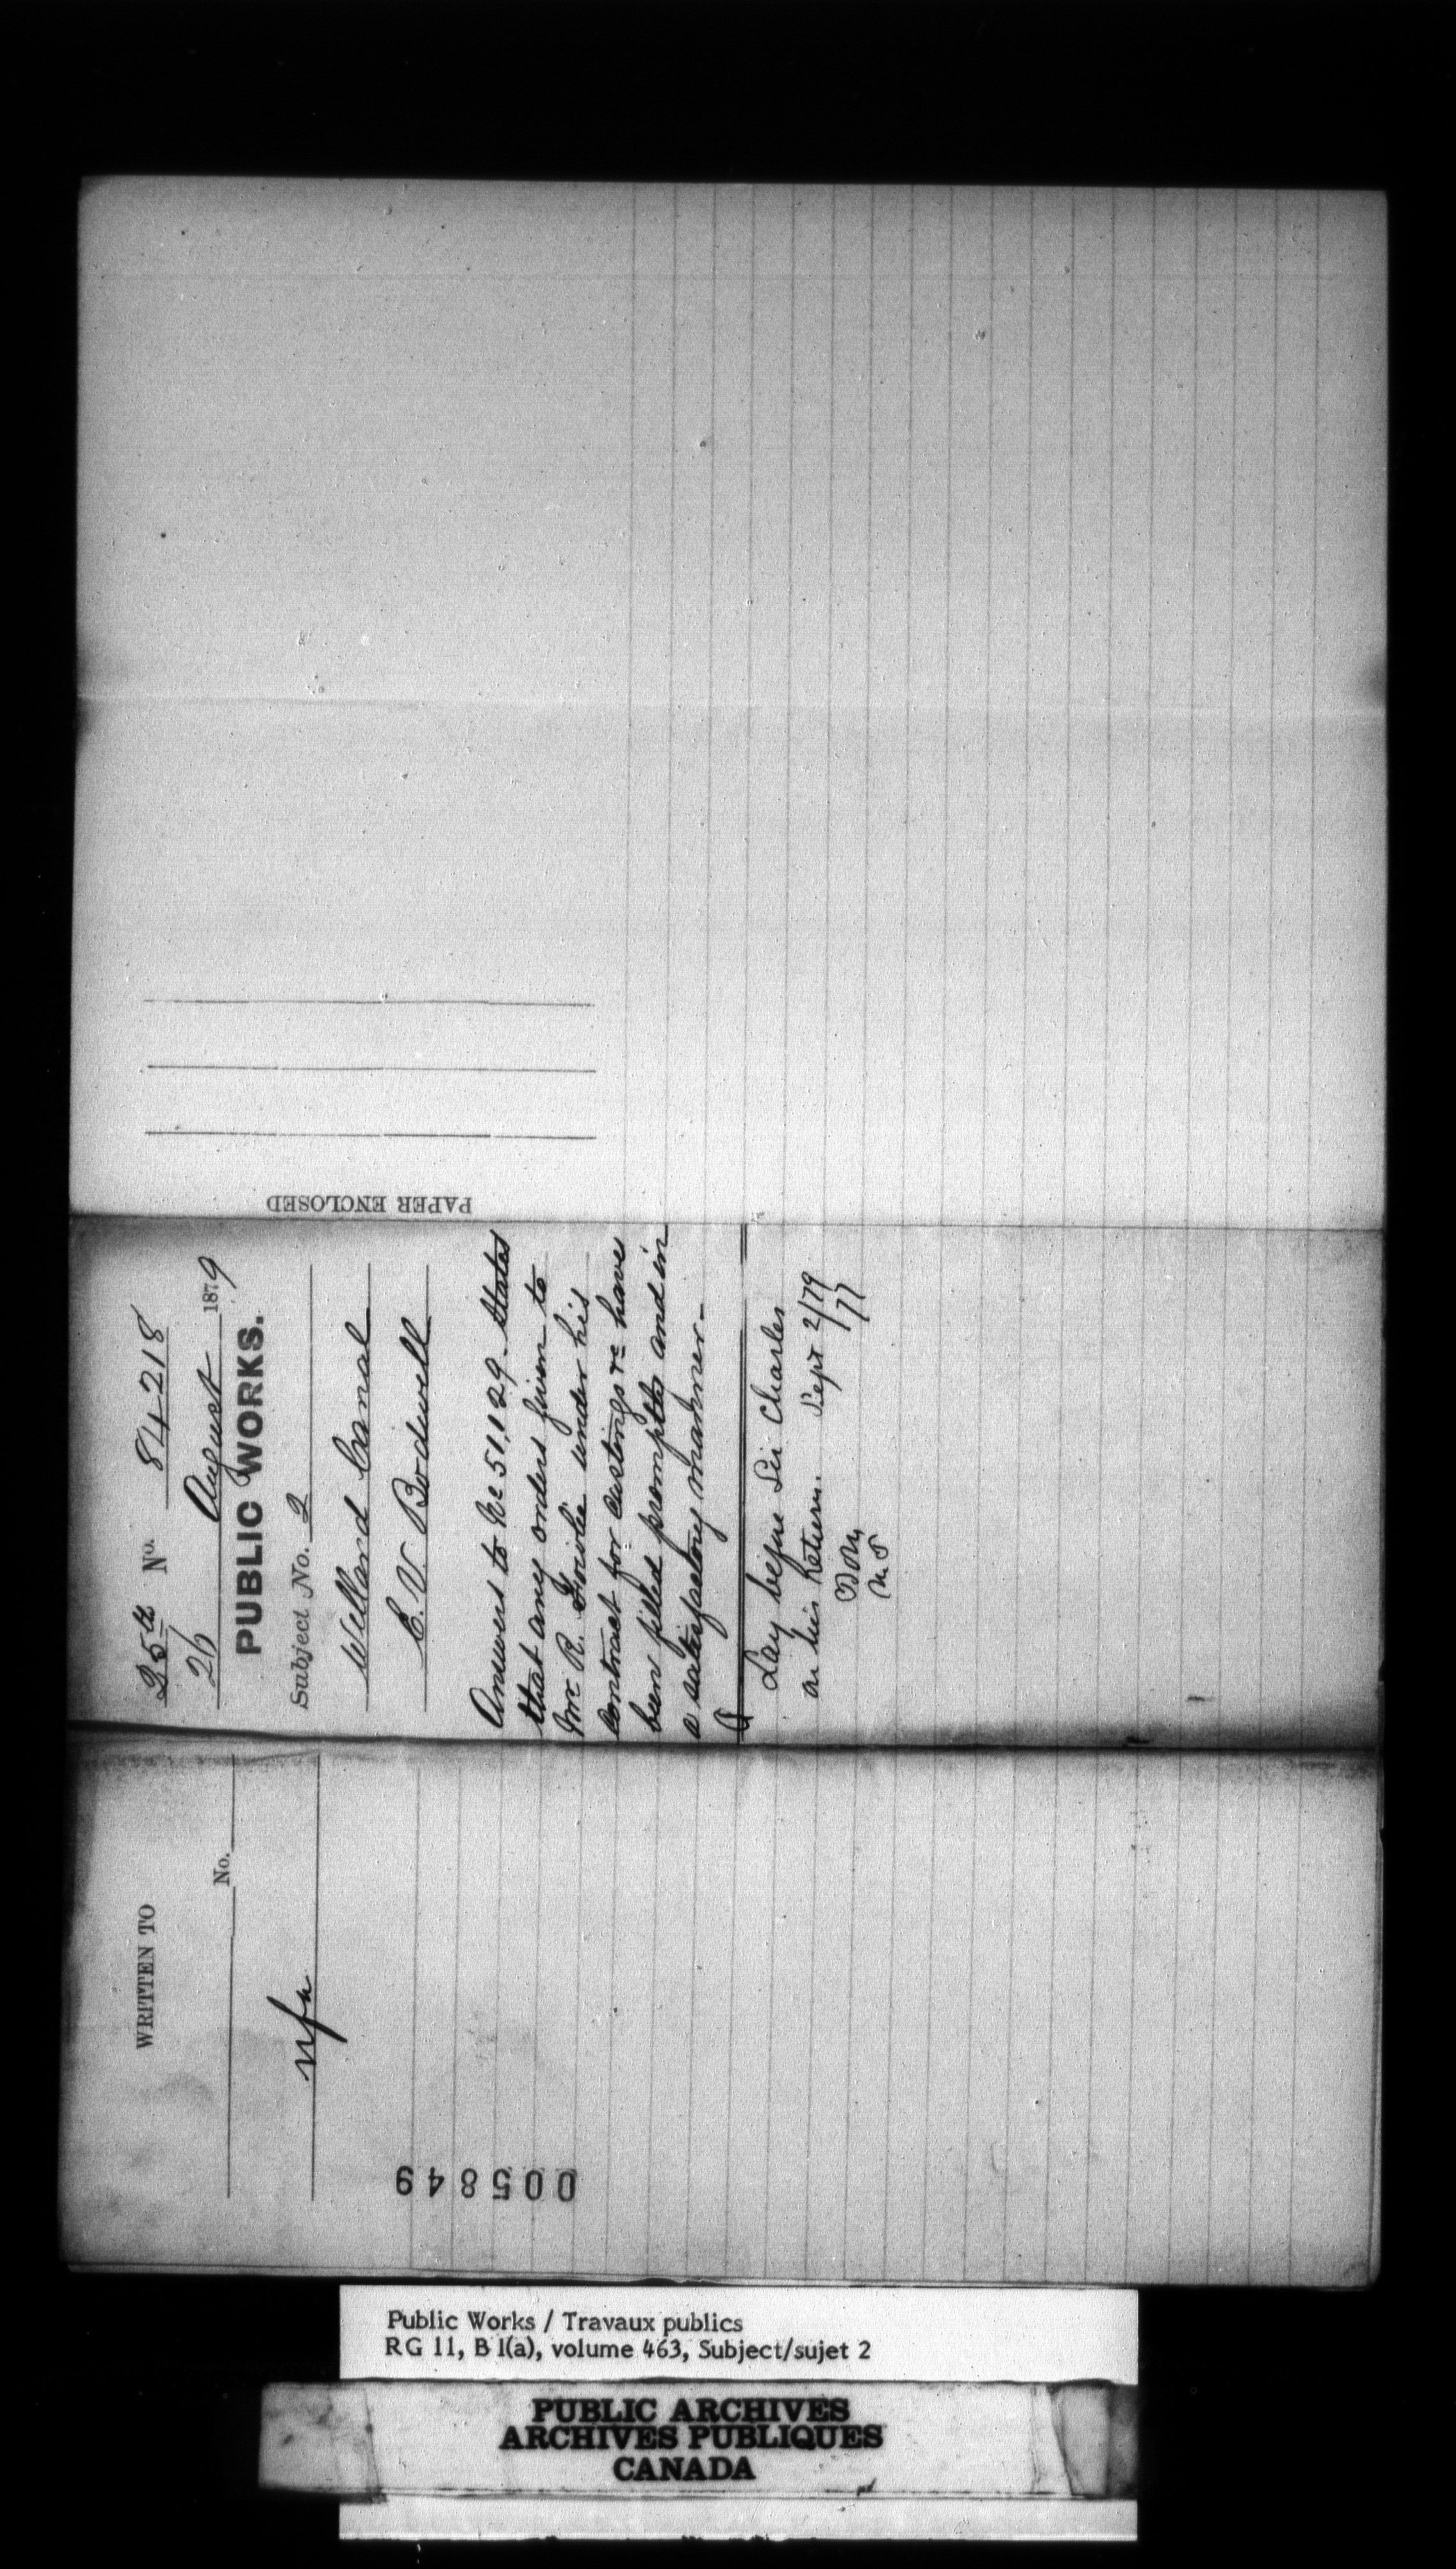 PAPER ENCLOSED
25th No. 84218
26 August 1879
PUBLIC WORKS.
Subject No. 2
Welland Canal
E. V. Bodwell
Answers to No 51,129 - States
that any orders given to
Mr R. under his
contract for castings &c have
been filled promptly and in
a satisfactory manner.-
Lay before Sir Charles
on his return. Sept 2/79
77
WRITTEN TO
No.
nfa
005849
Public Works / Travaux publics
RG 11, B 1(a), volume 463, Subject/sujet 2
PUBLIC ARCHIVES
ARCHIVES PUBLIQUES
CANADA